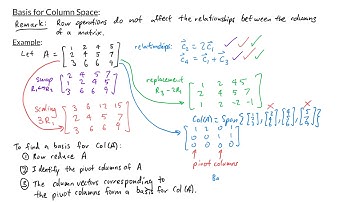 Basis for Column Space:
Remark: Row operations do not affect the relationships between the columns
of a matrix.
Example:
Let A = [ 1 2 4 5
2 4 5 7
3 6 6 9 ]
relationships: C₂ = 2C₁ ✓ ✓ ✓
C₄ = C₁ + C₃ ✓ ✓ ✓
swap
R₁↔R₂
[ 2 4 5 7
1 2 4 5
3 6 6 9 ]
replacement
R₃ - 2R₁
[ 1 2 4 5
2 4 5 7
1 2 -2 -1 ]
scaling
3R₁
[ 3 6 12 15
2 4 5 7
3 6 6 9 ]
Col(A) = Span
[ 1 2 0 1
0 0 1 1
0 0 0 0 ]
pivot columns
To find a basis for Col(A):
① Row reduce A
② Identify the pivot columns of A.
③ The column vectors corresponding to
the pivot columns form a basis for Col(A).
Ba